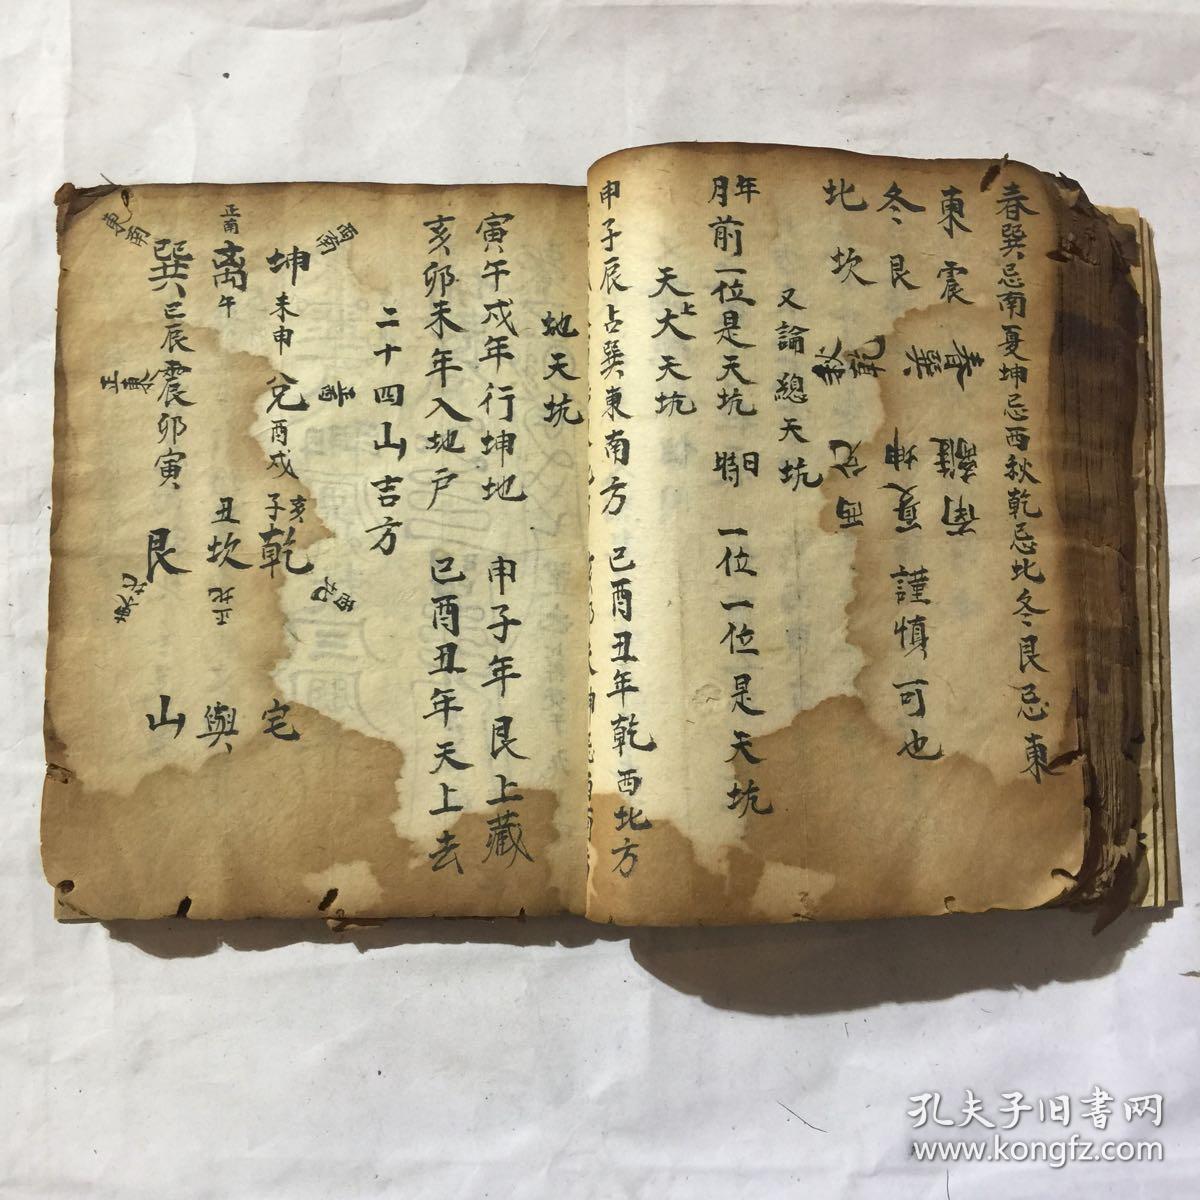 春巽忌南夏坤忌西秋乾忌北冬艮忌東
東震 春巽 南離
冬艮 夏坤 謹慎可也
北坎 秋乾 西兌
又論總天坑
年月前一位是天坑 日時一位一位是天坑
天上大天坑
申子辰占巽東南方 已酉丑年乾西北方
地天坑
寅午戌年行坤地 申子年艮上藏
亥卯未年入地户 已酉丑年天上去
二十四山吉方
西南 坤未申兌酉戌亥子乾 宅
正南 離午 丑坎 正北 與
東南 巽已辰震卯寅 艮 山
正東
孔夫子旧書网
www.kongfz.com